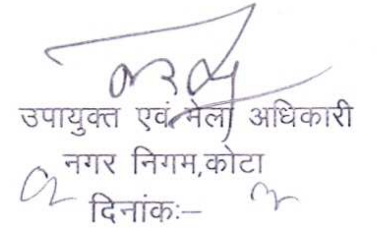 उपायुक्त एवं मेला अधिकारी
नगर निगम,कोटा
दिनांकः–